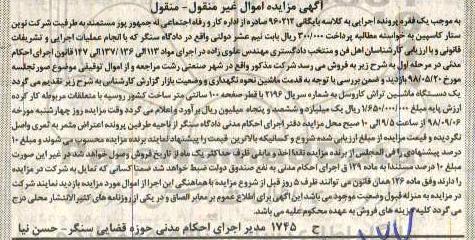 آگهی مزایده اموال غیر منقول - منقول
به موجب یک فقره پرونده اجرایی به کلاسه بایگانی ۹۶۰۲۱۲ صادره از اداره کار و رفاه اجتماعی له جمهور پوز مستمند به طرفیت شرکت نوین
ستار کاسپین به خواسته مطالبه پرداخت ۳۰۰/۰۰۰ ریال بابت نیم عشر دولتی واقع در دادگاه سنگر که با انجام عملیات اجرایی و تشریفات
قانونی و با ارزیابی کارشناسان اهل فن و منتخب دادگستری مهندس علوی زاده در اجرای مواد ۱۱۳ الی ۱۳۶/ ۱۳۷ الی ۱۴۷ قانون اجرای احکام
مدنی در مرحله اول به شرح زیر به فروش می رسد شرکت مذکور واقع در شهر صنعتی رشت مراجعه و از اموال توقیفی موضوع صورتجلسه
مورخ ۹۸/۰۵/۲۰ بازدید و ضمن بررسی با توجه به قدمت ماشین نحوه نگهداری و وضعیت بازار گزارش کارشناسی به شرح زیر تقدیم می گردد
یک دستگاه ماشین تراش کاروسل به شماره سریال ۲۱۹۶ با قطر صفحه ۱۰۰ سانتی متر ساخت کشور روسیه با متعلقات مربوطه کار کرده
ارزش پایه مبلغ ۱/۶۵۰/۰۰۰/۰۰۰ ریال یک میلیارد و ششصد و پنجاه میلیون ریال برآورد و اعلام می گردد وقت مزایده روز چهارشنبه مورخه
۹۸/۰۹/۰۶ از ساعت ۹/۵ الی ۱۰ صبح محل مزایده دفتر اجرای احکام مدنی دادگاه سنگر از ناحیه طرفین پرونده اعتراض مثمر به ثمری واصل
نگردیده و قیمت مزایده از مبلغ ارزیابی شده شروع و کسانیکه بالاترین قیمت را پیشنهاد نمایند برنده مزایده محسوب می شوند و مبلغ ۱۰
درصد پیشنهادی را فی المجلس از برنده مزایده نقدا اخذ و مابقی ظرف حداکثر یک ماه از تاریخ فروش وصول خواهد شد در غیر این صورت
مبلغ ۱۰ درصد مستند به ماده ۱۲۹ ق اجرای احکام مدنی به نفع صندوق دولت ضبط خواهد شد ضمنا کسانی که تمایل به شرکت در مزایده
را دارند وفق ماده ۱۲۶ همان قانون می توانند ظرف ۵ روز قبل از شروع مزایده با هماهنگی این اجرا از اموال مورد مزایده بازدید نمایند شرکت
در مزایده به منزله قبول وضعیت موجود می باشد این آگهی برای اطلاع عموم بر معابر الصاق و در یکی از روزنامه های کثیر الانتشار محلی درج
می گردد کلیه هزینه های فروش به عهده محکوم علیه می باشد.
ح ۱۷۴۵ مدیر اجرای احکام مدنی حوزه قضایی سنگر- حسن نیا